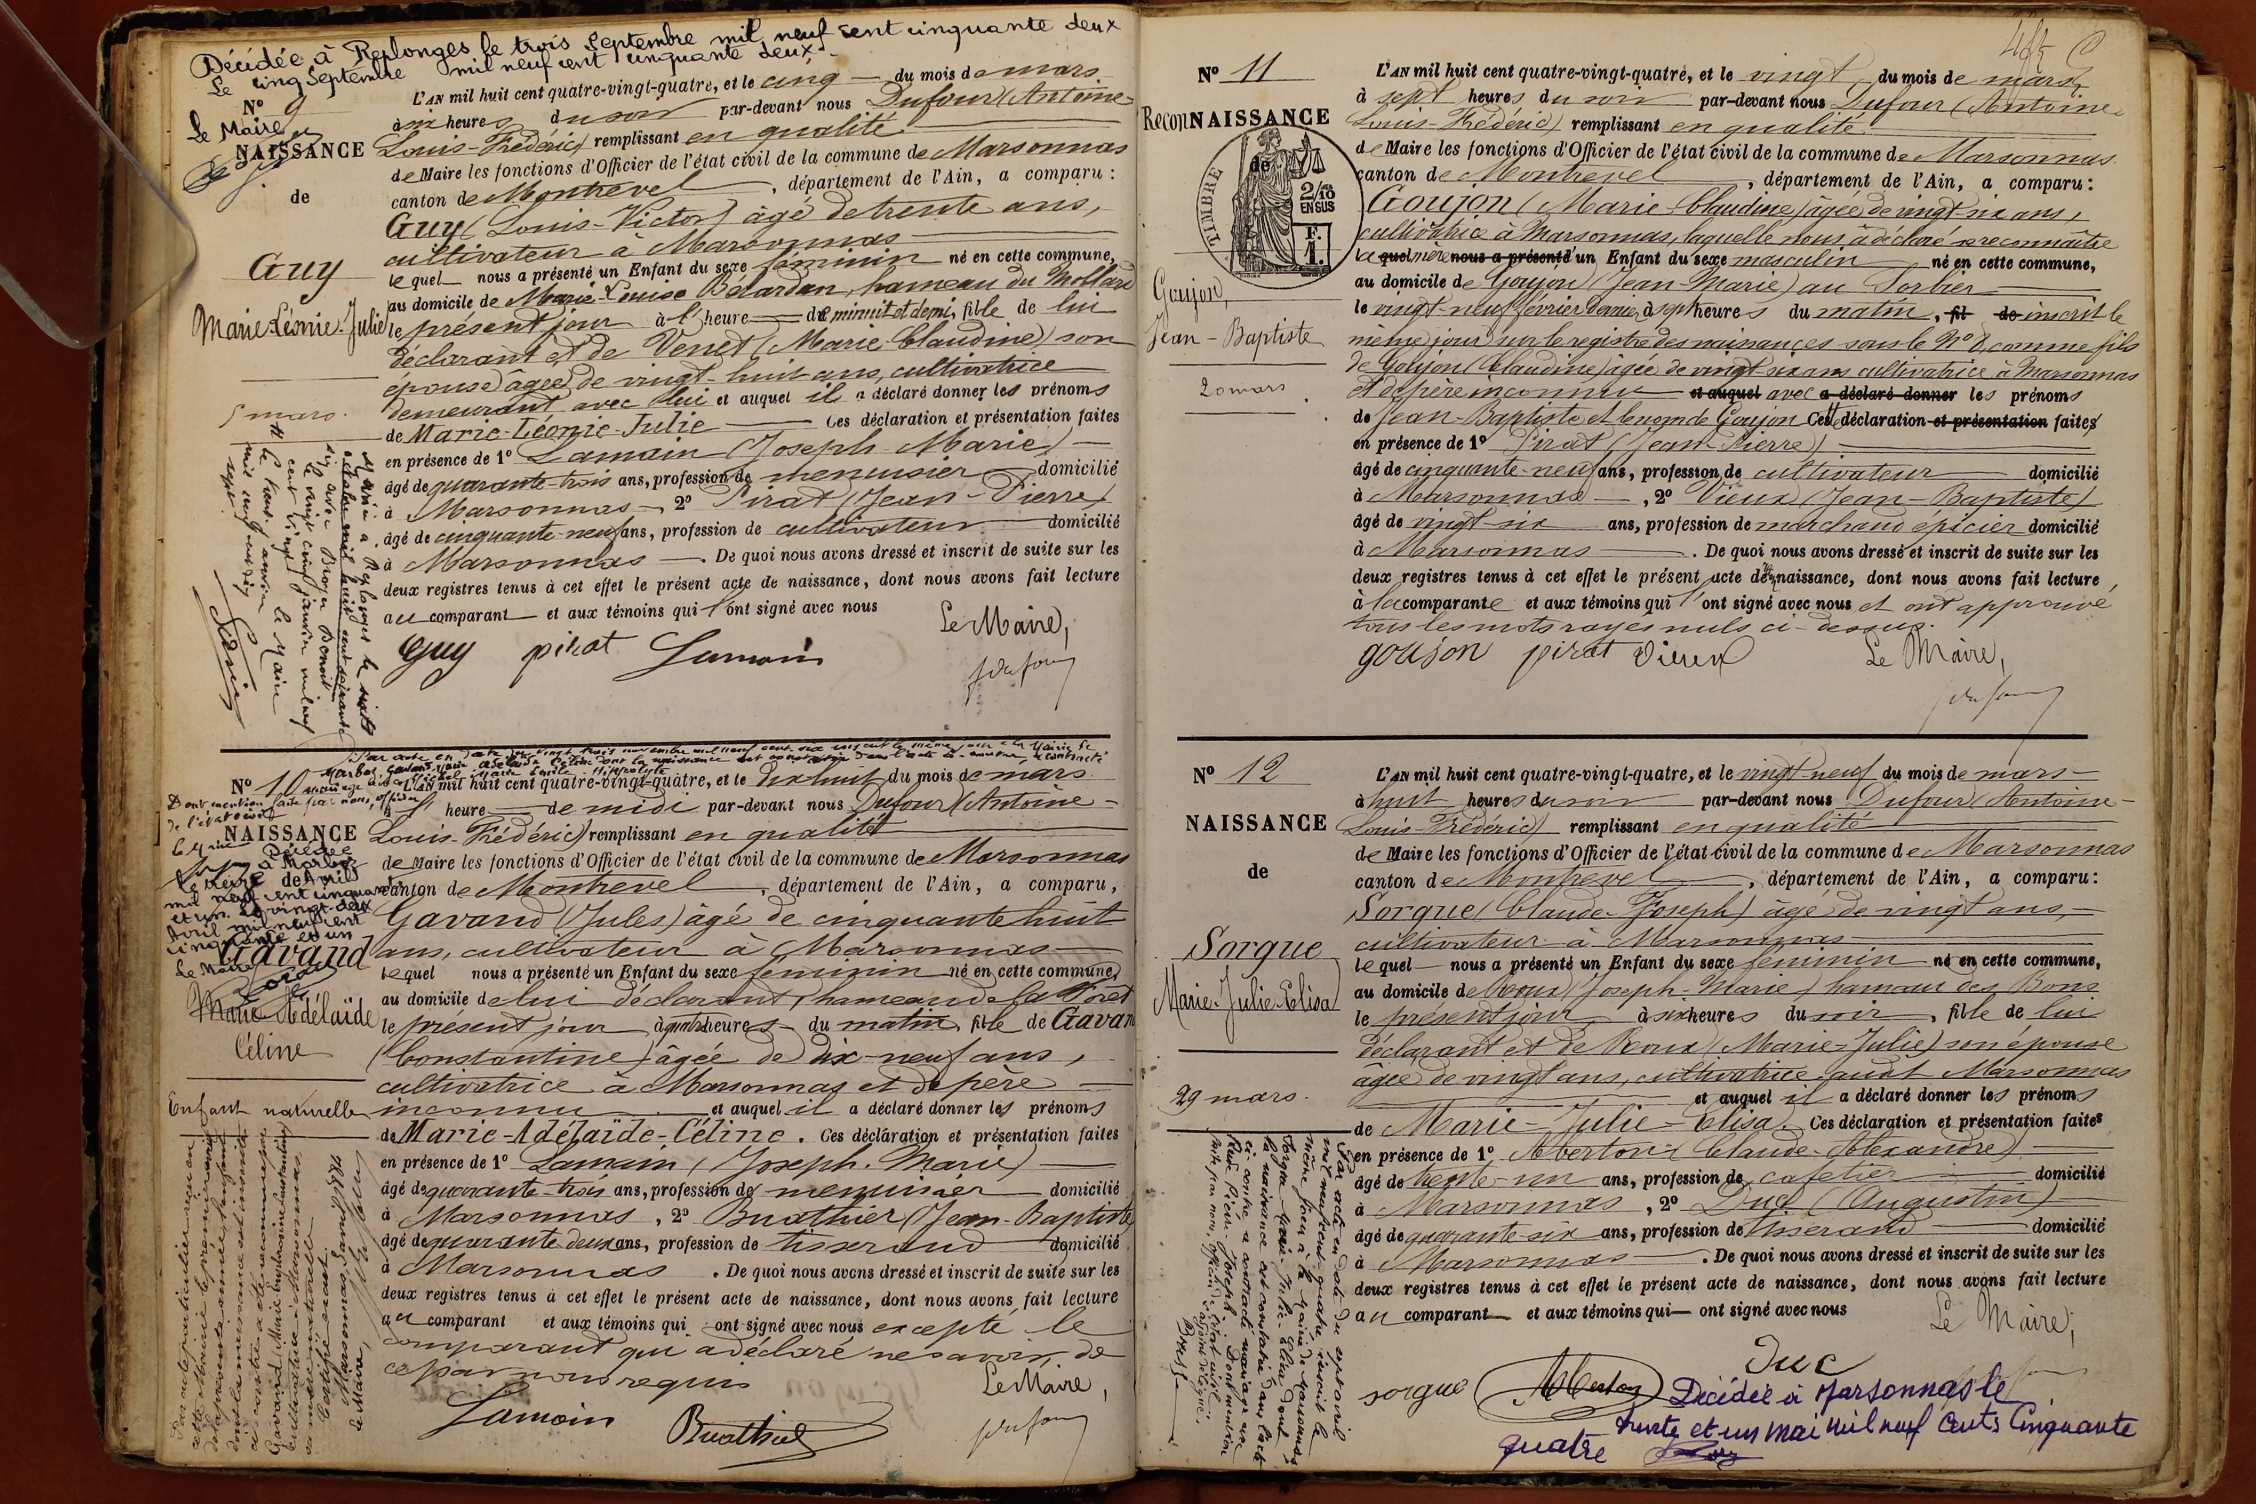 Décidée à Replonges le trois septembre mil neuf cent cinquante deux
Le cinq septembre mil neuf cent cinquante deux.
Nº 9
Le Maire
NAISSANCE
de
Guy
Marie-Léonie-Julie
5 mars.
L'AN mil huit cent quatre-vingt-quatre, et le cinq du mois de mars
à six heures du soir par-devant nous Dufour (Antoine
Louis-Frédéric) remplissant en qualité
de Maire les fonctions d'Officier de l'état civil de la commune de Marsonnas
canton de Montrevel, département de l'Ain, a comparu :
Guy (Louis-Victor) âgé de trente ans,
cultivateur à Marsonnas
lequel nous a présenté un Enfant du sexe féminin né en cette commune,
au domicile de Marie-Louise Bérardan, hameau du Mollard
le présent jour à l'heure de minuit et demi, fille de lui
déclarant et de Venet (Marie-Claudine) son
épouse âgée de vingt-huit ans, cultivatrice
demeurant avec lui et auquel il a déclaré donner les prénoms
de Marie-Léonie-Julie Ces déclaration et présentation faites
en présence de 1º Lamain (Joseph-Marie)
âgé de quarante-trois ans, profession de menuisier domicilié
à Marsonnas, 2º Pirat (Jean-Pierre)
âgé de cinquante-neuf ans, profession de cultivateur domicilié
à Marsonnas. De quoi nous avons dressé et inscrit de suite sur les
deux registres tenus à cet effet le présent acte de naissance, dont nous avons fait lecture
au comparant et aux témoins qui l'ont signé avec nous
Le Maire,
Guy pirat Lamain
Dufour
Mariée à Replonges le
sis avec Broyer Benoit
le vingt cinq janvier mil neuf
cent vingt
le Maire
Par acte en date du vingt trois novembre mil neuf cent six inscrit le même jour à la Mairie de
Marboz, Gavand Marie Adélaïde Céline dont la naissance est constatée dans l'acte ci-contre, a contracté
mariage avec Michel Marie Emile Hippolyte
Nº 10
Dont mention faite par nous, officier
de l'état civil
NAISSANCE
Décédée
à Marboz
le treize de Avril
mil neuf cent cinquante
et un. Le vingt-deux
Avril mil neuf cent
cinquante et un
Le Maire
Gavand
Marie Adélaïde
Céline
Enfant naturelle
L'AN mil huit cent quatre-vingt-quatre, et le dix huit du mois de mars
à heure de midi par-devant nous Dufour (Antoine-
Louis-Frédéric) remplissant en qualité
de Maire les fonctions d'Officier de l'état civil de la commune de Marsonnas
canton de Montrevel, département de l'Ain, a comparu,
Gavand (Jules) âgé de cinquante huit
ans, cultivateur à Marsonnas
lequel nous a présenté un Enfant du sexe féminin né en cette commune,
au domicile de lui déclarant, hameau de la Forêt
le présent jour à quatre heures du matin, fille de Gavand
(Constantine) âgée de dix-neuf ans,
cultivatrice à Marsonnas et de père
inconnu et auquel il a déclaré donner les prénoms
de Marie-Adélaïde-Céline. Ces déclaration et présentation faites
en présence de 1º Lamain (Joseph-Marie)
âgé de quarante-trois ans, profession de menuisier domicilié
à Marsonnas, 2º Buathier (Jean-Baptiste)
âgé de quarante deux ans, profession de tisserand domicilié
à Marsonnas. De quoi nous avons dressé et inscrit de suite sur les
deux registres tenus à cet effet le présent acte de naissance, dont nous avons fait lecture
au comparant et aux témoins qui ont signé avec nous excepté le
comparant qui a déclaré ne savoir, de
ce par nous requis
Le Maire,
Lamain Buathier Dufour
Nº 11
ReconNAISSANCE
de
TIMBRE
2/10
EN SUS
F.
1.
Goujon,
Jean-Baptiste
20 mars
L'AN mil huit cent quatre-vingt-quatre, et le vingt du mois de mars
à sept heures du soir par-devant nous Dufour (Antoine
Louis-Frédéric) remplissant en qualité
de Maire les fonctions d'Officier de l'état civil de la commune de Marsonnas
canton de Montrevel, département de l'Ain, a comparu :
Goujon (Marie-Claudine) âgée de vingt-six ans,
cultivatrice à Marsonnas, laquelle nous a déclaré reconnaître
la quel mère nous a présenté un Enfant du sexe masculin né en cette commune,
au domicile de Goujon (Jean-Marie) au Sorbier
le vingt-neuf février dernier, à sept heures du matin, fil de inscrit le
même jour sur le registre des naissances sous le Nº 8, comme fils
de Goujon (Claudine) âgée de vingt-six ans cultivatrice à Marsonnas
et de père inconnu et auquel avec a déclaré donner les prénoms
de Jean-Baptiste et le nom de Goujon Cette déclaration et présentation faites
en présence de 1º Pirat (Jean-Pierre)
âgé de cinquante-neuf ans, profession de cultivateur domicilié
à Marsonnas, 2º Vieux (Jean-Baptiste)
âgé de vingt-six ans, profession de marchand épicier domicilié
à Marsonnas. De quoi nous avons dressé et inscrit de suite sur les
deux registres tenus à cet effet le présent acte de naissance, dont nous avons fait lecture
à la comparante et aux témoins qui l'ont signé avec nous et ont approuvé
tous les mots rayés nuls ci-dessus.
Le Maire,
goujon pirat Vieux
Dufour
Nº 12
NAISSANCE
de
Sorgue
Marie-Julie-Elisa
29 mars.
L'AN mil huit cent quatre-vingt-quatre, et le vingt-neuf du mois de mars
à huit heures du soir par-devant nous Dufour (Antoine-
Louis-Frédéric) remplissant en qualité
de Maire les fonctions d'Officier de l'état civil de la commune de Marsonnas
canton de Montrevel, département de l'Ain, a comparu :
Sorgue (Claude-Joseph) âgé de vingt ans,
cultivateur à Marsonnas
lequel nous a présenté un Enfant du sexe féminin né en cette commune,
au domicile de Roux (Joseph-Marie) hameau des Bons
le présent jour à six heures du soir, fille de lui
déclarant et de Roux (Marie-Julie) son épouse
âgée de vingt ans, cultivatrice audit Marsonnas
et auquel il a déclaré donner les prénoms
de Marie-Julie-Elisa. Ces déclaration et présentation faites
en présence de 1º Mberton (Claude-Alexandre)
âgé de trente-un ans, profession de cafetier domicilié
à Marsonnas, 2º Duc (Augustin)
âgé de quarante-six ans, profession de tisserand domicilié
à Marsonnas. De quoi nous avons dressé et inscrit de suite sur les
deux registres tenus à cet effet le présent acte de naissance, dont nous avons fait lecture
au comparant et aux témoins qui ont signé avec nous
Le Maire,
Duc
sorgue
Décédée à Marsonnas le
trente et un mai mil neuf cents Cinquante
quatre